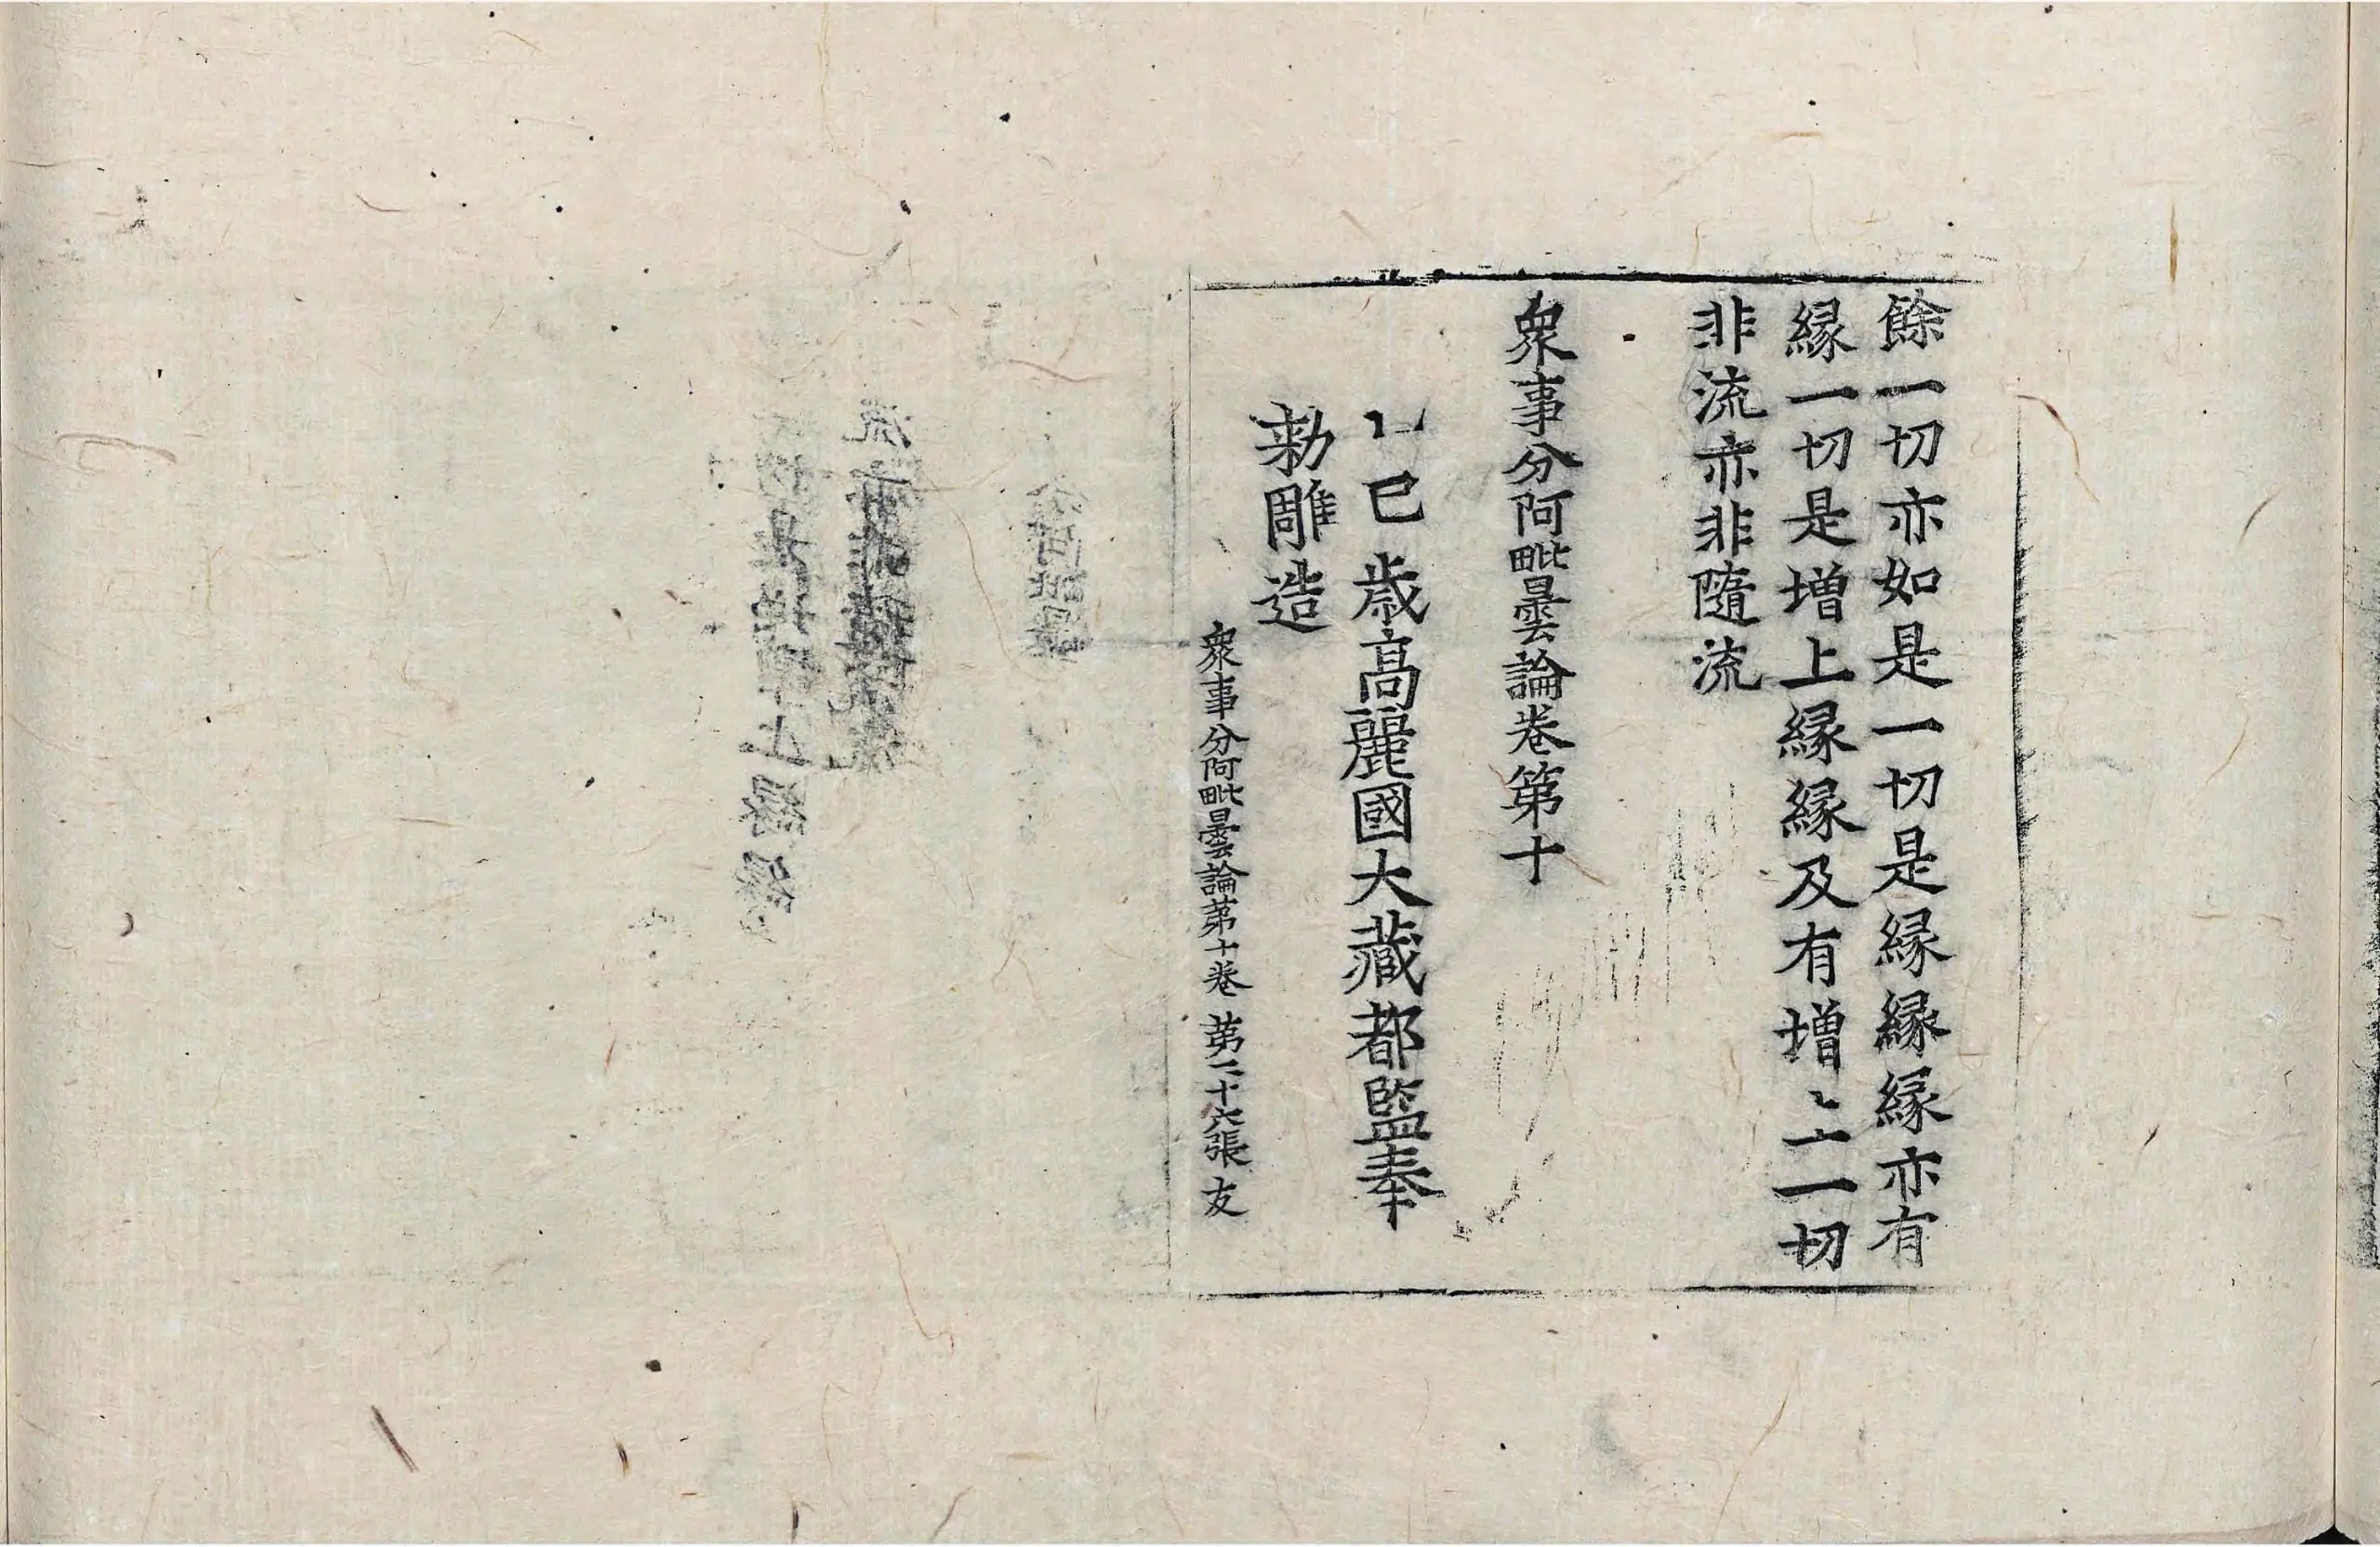 餘一切亦如是一切是縁縁縁亦有
縁一切是增上縁縁及有增上一切
非流亦非隨流
衆事分阿毗曇論卷第十
乙巳歲高麗國大藏都監奉
勑雕造
衆事分阿毗曇論第十卷 第二十六張 友